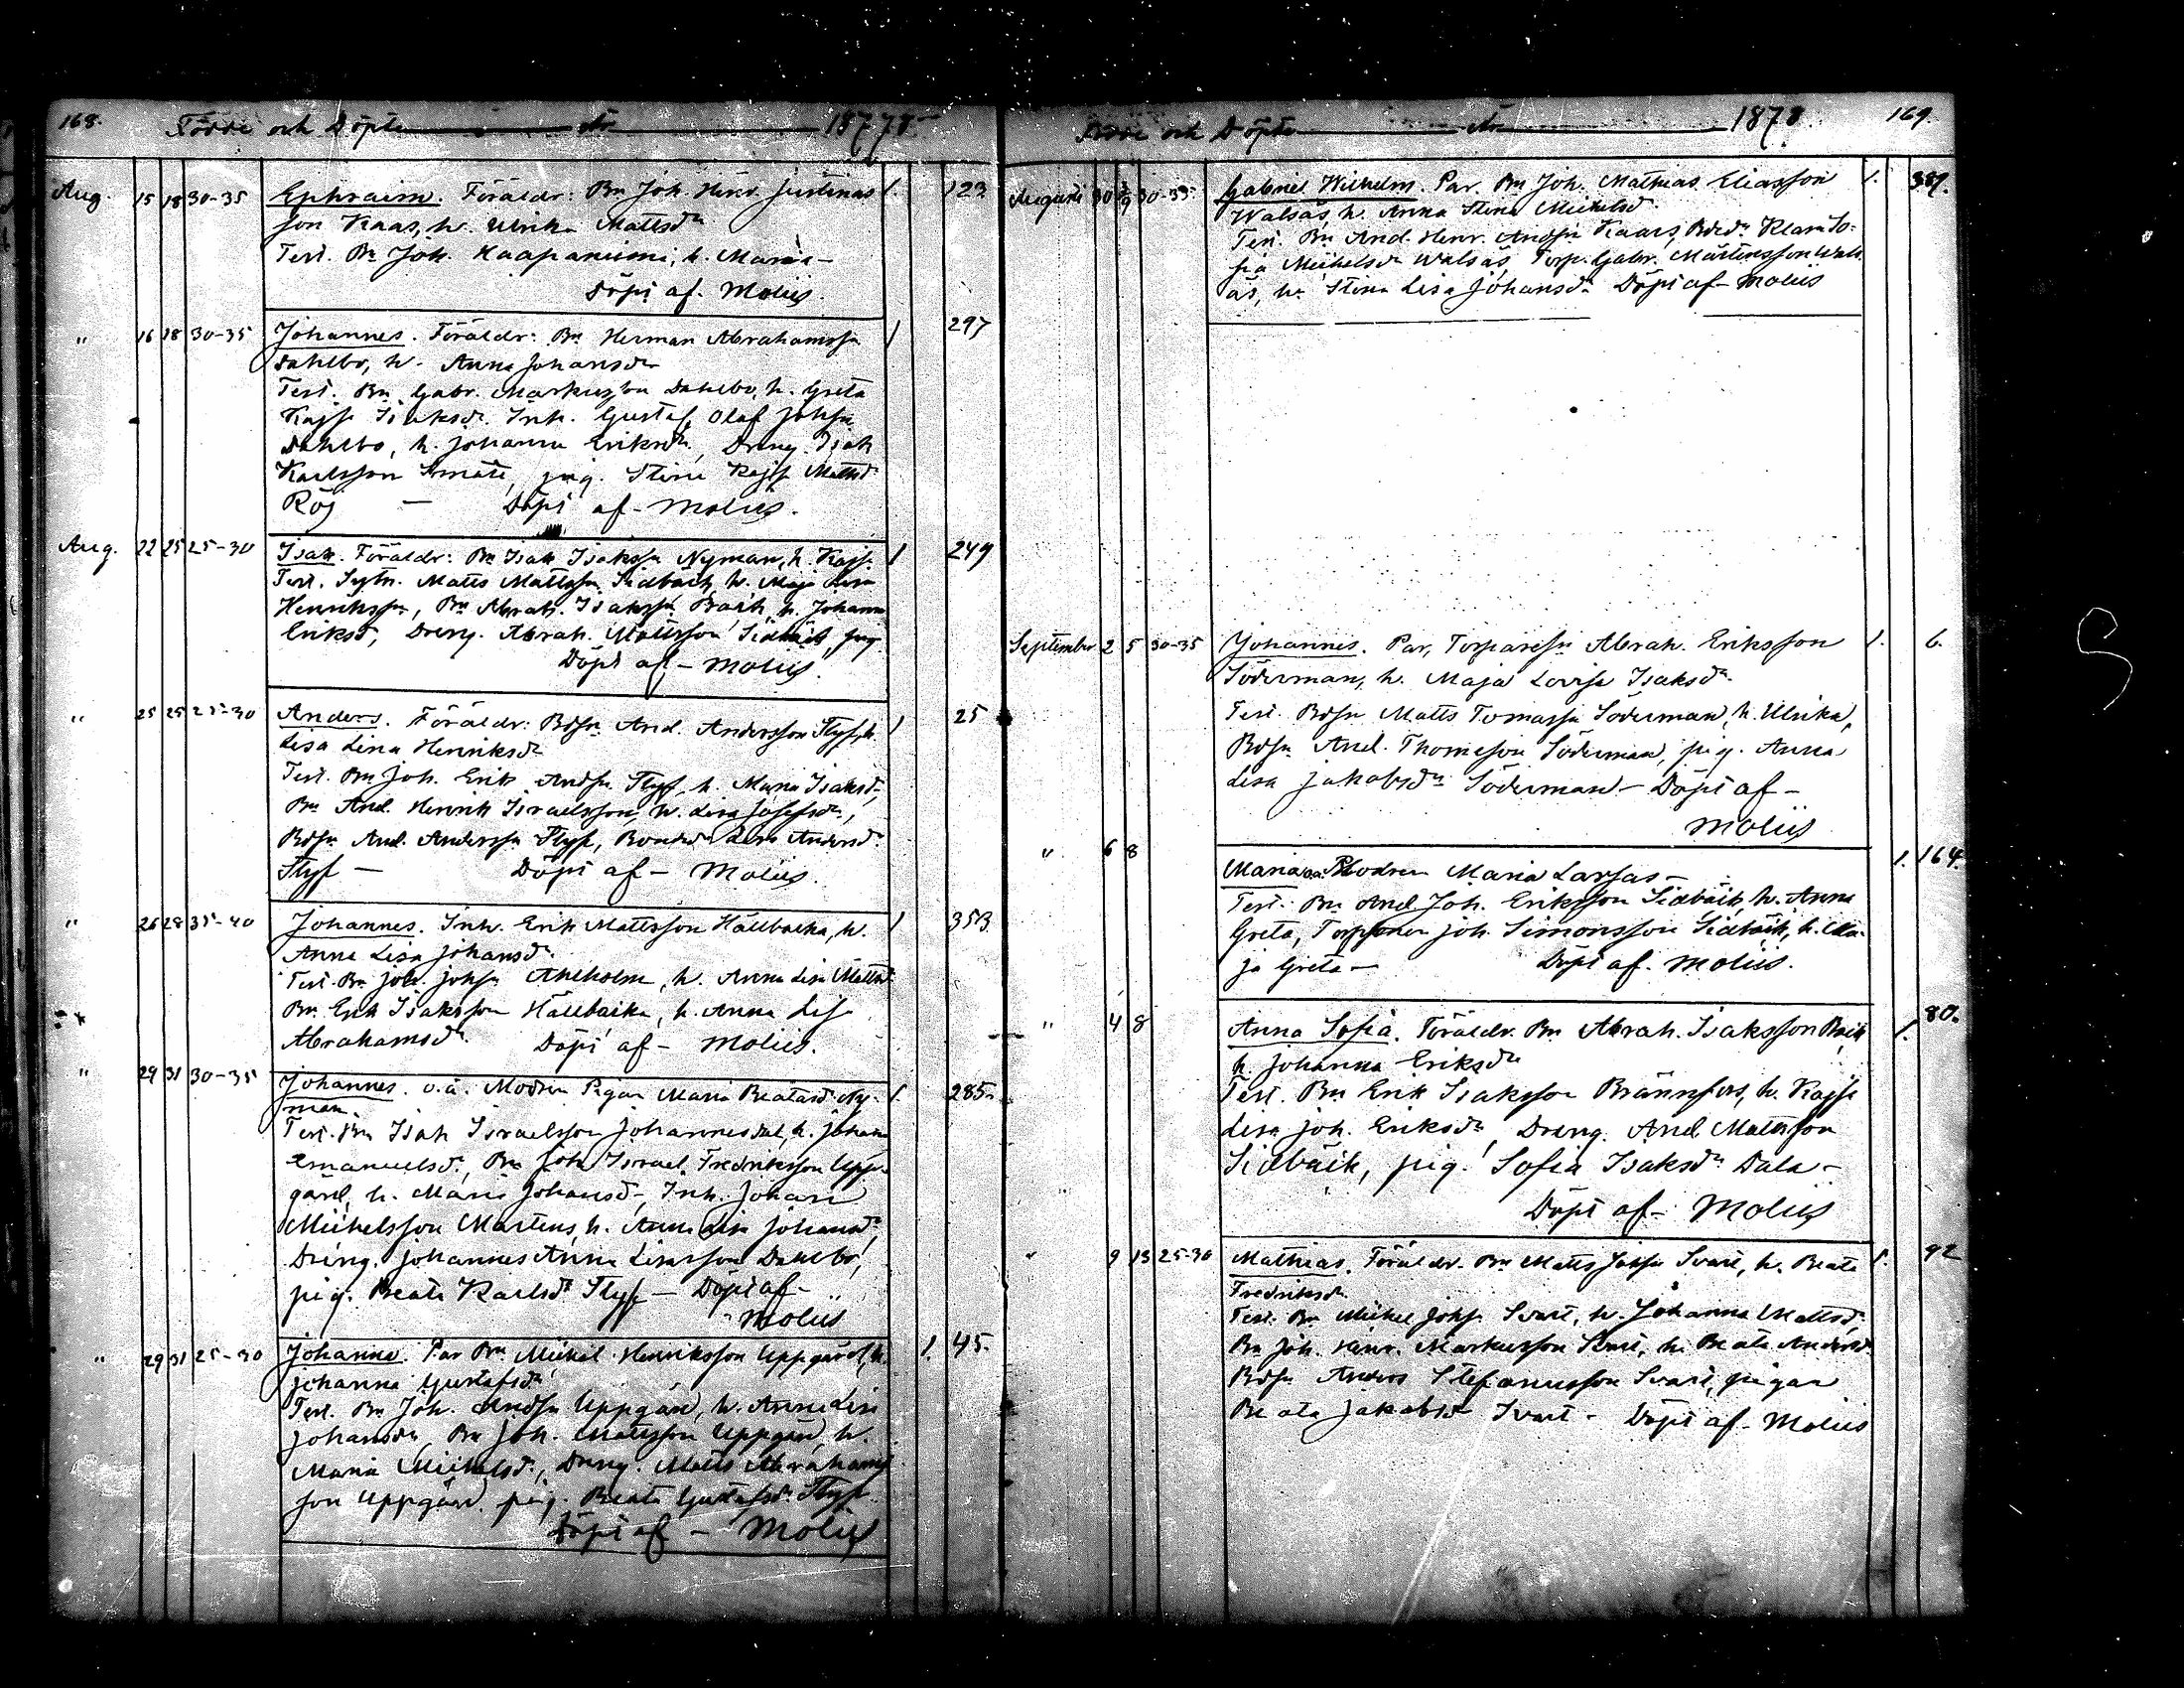 168. Födde och Döpte År 1878
Aug. 15 18 30-35 Ephraim. Föräldr: Bn Joh. Henr. Justinas 1. 123
son Kaas, h. Ulrika Mattsdr
Test. Bn Joh. Haapaniemi, h. Maria —
Döpt af. Moliis.
" 16 18 30-35 Johannes. Föräldr: Bn Herman Abrahamssn 1 297
Dahlbo, h. Anna Johansdr
Test. Bn Gabr. Markusson Dahlbo, h. Greta
Kajsa Isaksdr. Inh. Gustaf Olof Johssn
Dahlbo, h. Johanna Eriksdr, Dreng. Isak
Karlsson Smäte, pig. Stina Kajsa Mattsdr
Röj — Döpt af - Moliis.
Aug. 22 25 25-30 Isak. Föräldr: Bn Isak Isakssn Nyman, h. Kajsa 1 249
Test. Sytn. Matts Mattssn Sidbäck, h. Maja Lisa
Henriksdr, Bn Abrah. Isakssn Bäck, h. Johanna
Eriksd, Dreng. Abrah. Mattsson Sidbäck, pig
Döpt af - Moliis.
" 25 25 25-30 Anders. Föräldr: Bdsn And. Andersson Styf, h. 1 25
Lisa Lina Henriksdr
Test. Bn Joh. Erik Andssn Styf, h. Maria Isaksdr,
Bn And. Henrik Israelsson, h. Lisa Josefsdr,
Bdsn And. Anderssn Styf, Bondedr Lisa Andersdr
Styf — Döpt af - Moliis.
" 26 28 35-40 Johannes. Inh. Erik Mattsson Hällbacka, h. 1 353
Anna Lisa Johansdr
Test. Bn Joh. Johssn Ahlholm, h. Anna Lisa Mattsdr
Bn Erik Isaksson Hällbacka, h. Anna Lisa
Abrahamsdr. Döpt af - Moliis.
" 29 31 30-35 Johannes. o.ä. Modren Pigan Maria Beatasdr Ny- 1. 285.
man.
Test. Bn Isak Israelsson Johannesdal, h. Johanna
Emanuelsdr, Bn Joh. Israel Fredriksson Upp-
gård, h. Maria Johansdr, Inh. Johan
Mickelsson Martens, h. Anna Lisa Johansdr,
Dreng. Johannes Anna Lisasson Dahlbo,
pig. Beata Karlsdr Styf — Döpt af -
Moliis
" 29 31 25-30 Johanna. Par Bn Mickel Henriksson Uppgård, h. 1. 45.
Johanna Gustafsdr
Test. Bn Joh. Andssn Uppgård, h. Anna Lisa
Johansdr, Bn Joh. Mattsson Uppgård, h.
Maria Mickelsdr, Dreng. Matts Abrahams
son Uppgård pig. Beata Gustafsdr Styf
Döpt af - Moliis
Födde och Döpte År 1878. 169.
Augusti 30 1/9 30-35 Gabriel Wilhelm. Par. Bn Joh. Mathias Eliasson 1. 387.
Walsäs, h. Anna Stina Mickelsdr
Test. Bn And. Henr. Andssn Kaars, Bdedr Klara So-
fia Mickelsdr Walsäs, Torp. Gabr. Mårtensson Wals
äs, h. Stina Lisa Johansdr Döpt af - Moliis
September 2 5 30-35 Johannes. Par, Torparesn Abrah. Eriksson 1. 6.
Söderman, h. Maja Lovisa Isaksdr.
Test. Bdsn Matts Tomassn Söderman, h. Ulrika,
Bdsn And. Thomsson Söderman, pig. Anna
Lisa Jakobsdr Söderman - Döpt af -
Moliis
" 6 8 Maria o.ä. Modren Maria Larsas — 1. 164.
Test. Bn And Joh. Eriksson Sidbäck, h. Anna
Greta, Torparen Joh. Simonsson Sidbäck, h. Ma-
ja Greta — Döpt af. Moliis.
" 4 8 Anna Sofia. Föräldr. Bn Abrah. Isaksson Bäck 1. 80.
h. Johanna Eriksdr
Test. Bn Erik Isaksson Brännfors, h. Kajsa
Lisa Joh. Eriksdr, Dreng. And. Mattsson
Sidbäck, pig. Sofia Isaksdr Dala —
Döpt af - Moliis
" 9 13 25-30 Mathias. Föräldr. Bn Matts Johssn Svart, h. Beata 1. 92
Fredriksdr.
Test. Bn Mickel Johss. Svart, h. Johanna Mattsdr
Bn Joh. Henr. Markusson Svart, h. Beata Andersdr.
Bdsn Anders Stefanusson Svart, pigan
Beata Jakobsdr Svart - Döpt af - Moliis